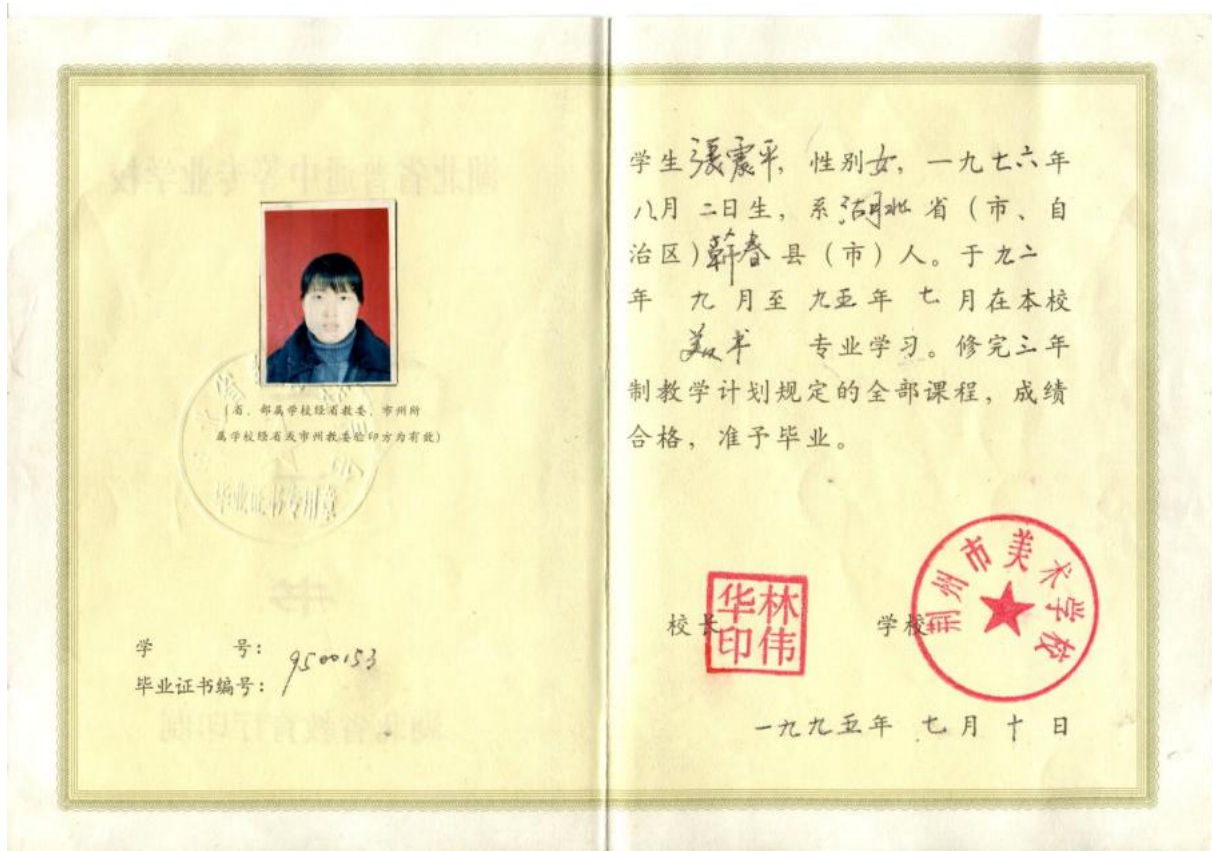 (省、部属学校经省教委、市州所
属学校经省或市州教委验印方为有效)
毕业证书专用章
学 号:
毕业证书编号: 9500153
学生張震平, 性别女, 一九七六年
八月 二日生, 系湖北 省 (市、自
治区) 蕲春 县 (市) 人。于 九二
年 九 月至 九五 年 七 月在本校
美术 专业学习。修完三年
制教学计划规定的全部课程, 成绩
合格, 准予毕业。
校长 林伟华印
学校 荆州市美术学校
一九九五年 七 月 十 日